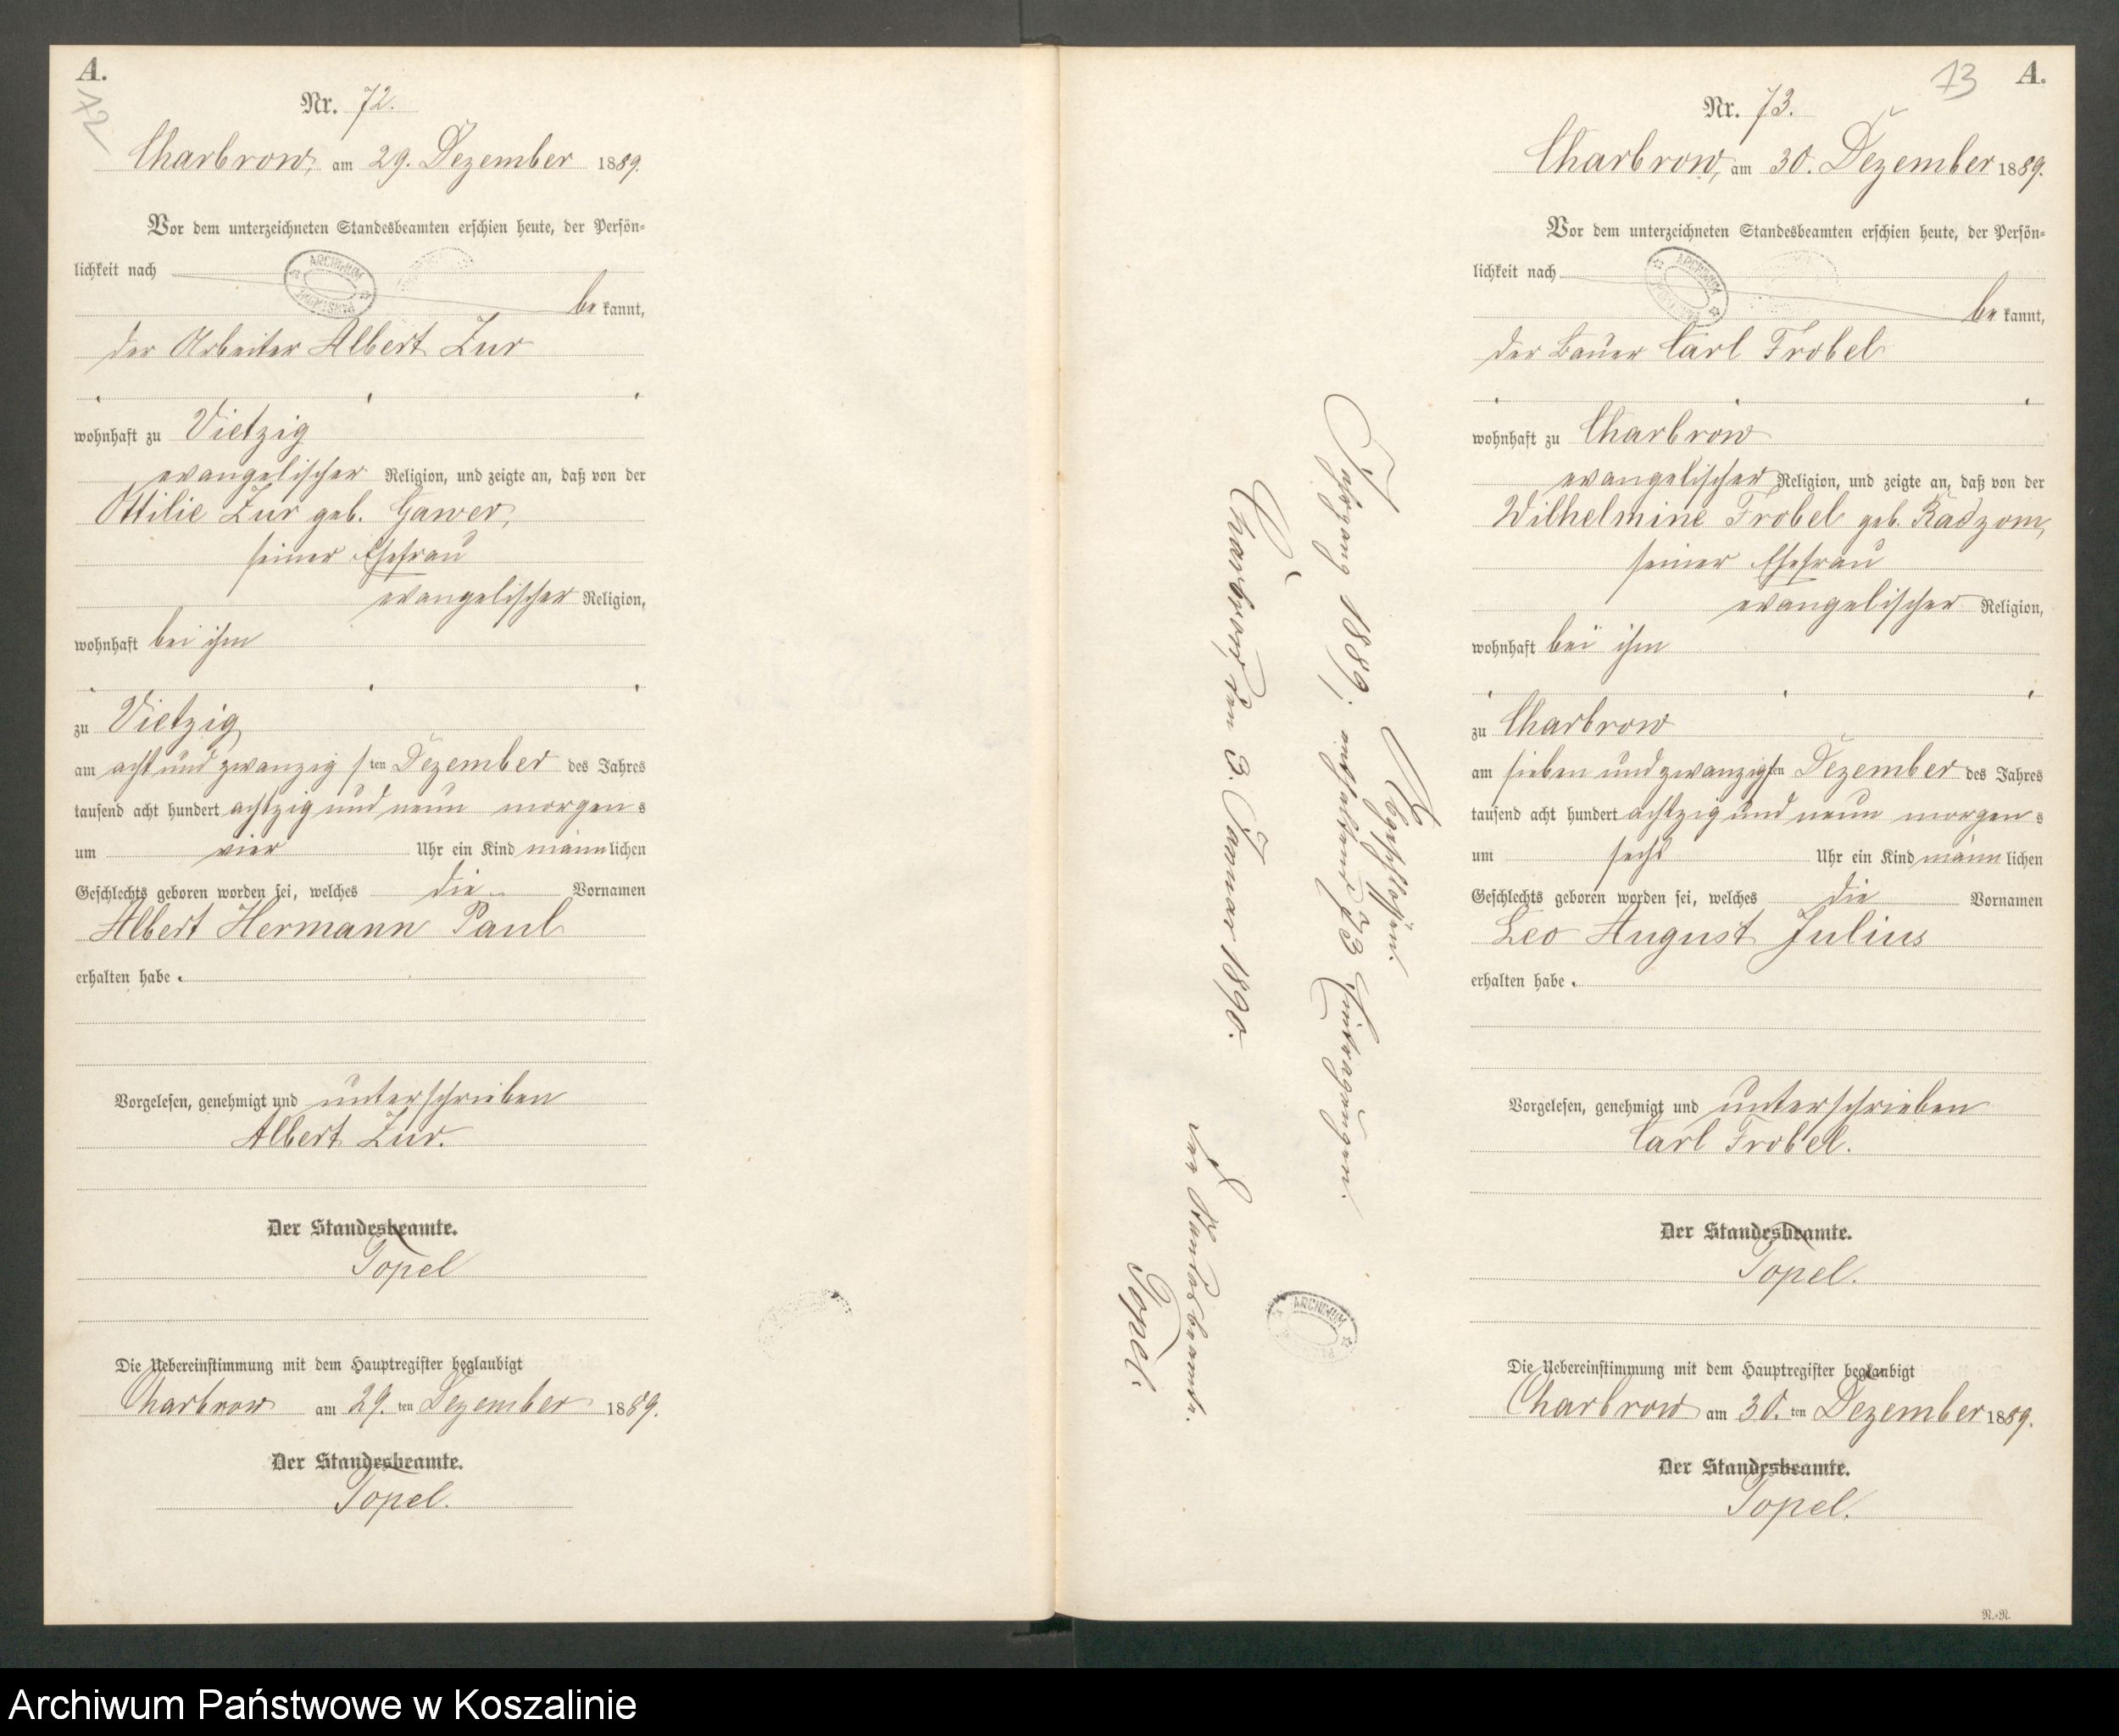 A.
72
Nr. 72.
Charbrow, am 29. Dezember 1889.
Vor dem unterzeichneten Standesbeamten erschien heute, der Persön-
lichkeit nach
ARCHIWUM
be kannt,
der Arbeiter Albert Zur
wohnhaft zu Vietzig
evangelischer Religion, und zeigte an, daß von der
Ottilie Zur geb. Gawer,
seiner Ehefrau
evangelischer Religion,
wohnhaft bei ihm
zu Vietzig
am acht und zwanzigsten Dezember des Jahres
tausend acht hundert achtzig und neun morgens
um vier Uhr ein Kind männlichen
Geschlechts geboren worden sei, welches die Vornamen
Albert Hermann Paul
erhalten habe.
Vorgelesen, genehmigt und unterschrieben
Albert Zur.
Der Standesbeamte.
Topel
Die Uebereinstimmung mit dem Hauptregister beglaubigt
Charbrow am 29. ten Dezember 1889.
Der Standesbeamte.
Topel.
Abgeschlossen.
Jahrgang 1889, enthaltend 73 Eintragungen.
Charbrow, den 3. Januar 1890.
Der Standesbeamte.
Topel.
ARCHIWUM
73
A.
Nr. 73.
Charbrow, am 30. Dezember 1889.
Vor dem unterzeichneten Standesbeamten erschien heute, der Persön-
lichkeit nach
ARCHIWUM
be kannt,
der Bauer Carl Frobel
wohnhaft zu Charbrow
evangelischer Religion, und zeigte an, daß von der
Wilhelmine Frobel geb. Radzom,
seiner Ehefrau
evangelischer Religion,
wohnhaft bei ihm
zu Charbrow
am sieben und zwanzigsten Dezember des Jahres
tausend acht hundert achtzig und neun morgens
um sechs Uhr ein Kind männlichen
Geschlechts geboren worden sei, welches die Vornamen
Leo August Julius
erhalten habe.
Vorgelesen, genehmigt und unterschrieben
Carl Frobel.
Der Standesbeamte.
Topel.
Die Uebereinstimmung mit dem Hauptregister beglaubigt
Charbrow am 30. ten Dezember 1889.
Der Standesbeamte.
Topel.
N.-N.
Archiwum Państwowe w Koszalinie